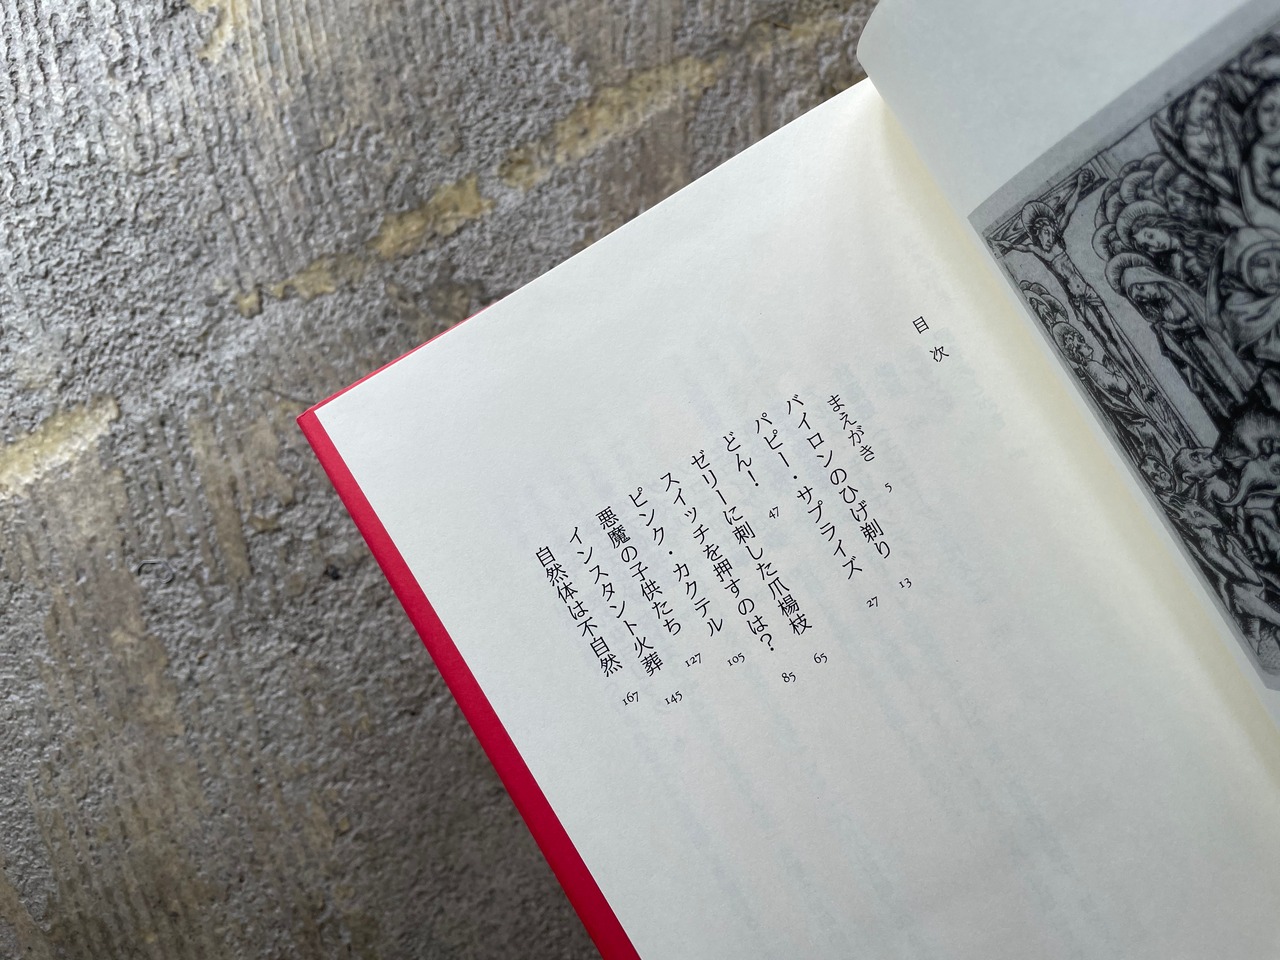 目次
まえがき 5
バイロンのひげ剃り 13
パピー・サプライズ 27
どん! 47
ゼリーに刺した爪楊枝 65
スイッチを押すのは? 85
ピンク・カクテル 105
悪魔の子供たち 127
インスタント火葬 145
自然体は不自然 167